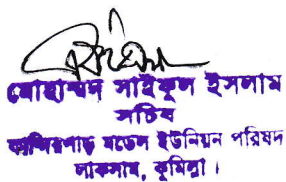 মোহাম্মদ সাইফুল ইসলাম
সচিব
কান্দিরপাড় মডেল ইউনিয়ন পরিষদ
লাকসাম, কুমিল্লা।